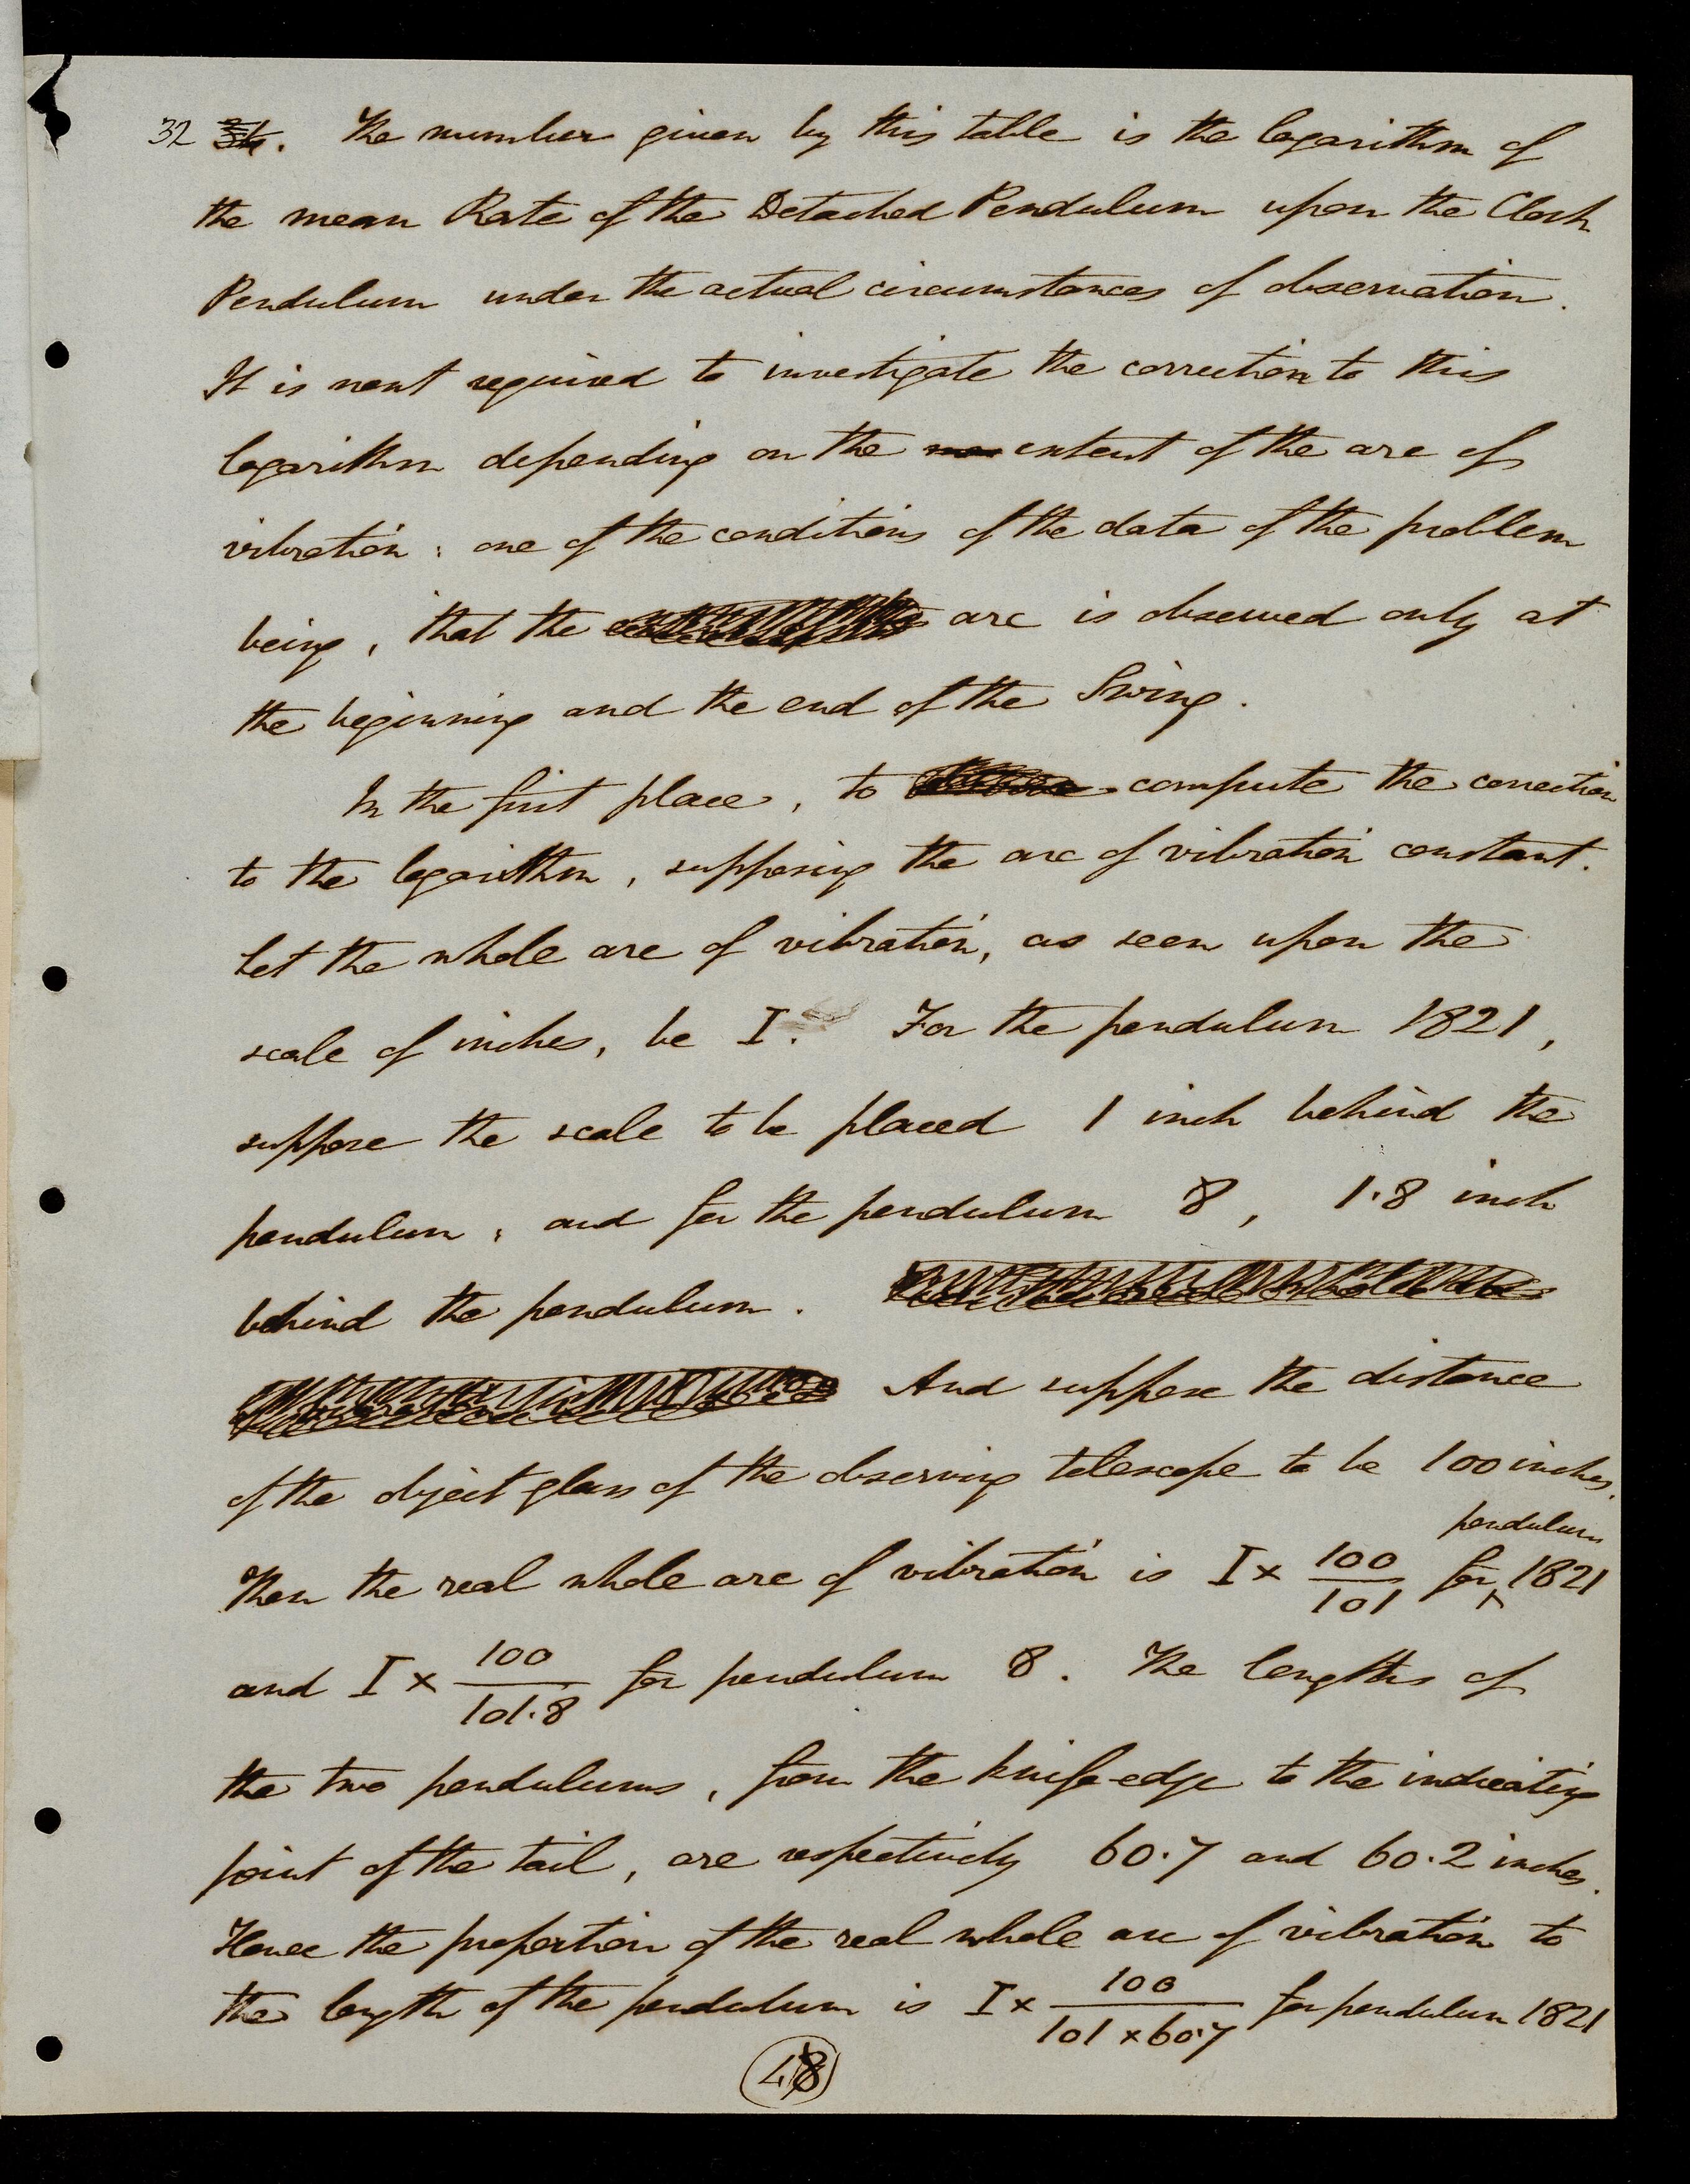 32 34. The number given by this table is the logarithm of
the mean Rate of the Detached Pendulum upon the Clock
Pendulum under the actual circumstances of observation.
It is next required to investigate the correction to this
logarithm depending on the extent of the arc of
vibration: one of the conditions of the data of the problem
being, that the arc is observed only at
the beginning and the end of the Swing.
In the first place, to compute the correction
to the logarithm, supposing the arc of vibration constant.
Let the whole arc of vibration, as seen upon the
scale of inches, be I. For the pendulum 1821,
suppose the scale to be placed 1 inch behind the
pendulum, and for the pendulum 8, 1.8 inch
behind the pendulum.
And suppose the distance
of the object glass of the observing telescope to be 100 inches.
Then the real whole arc of vibration is I × 100/101 for pendulum 1821
and I × 100/101.8 for pendulum 8. The lengths of
the two pendulums, from the knife-edge to the indicating
point of the tail, are respectively 60.7 and 60.2 inches.
Hence the proportion of the real whole arc of vibration to
the length of the pendulum is I × 100/101 × 60.7 for pendulum 1821
48